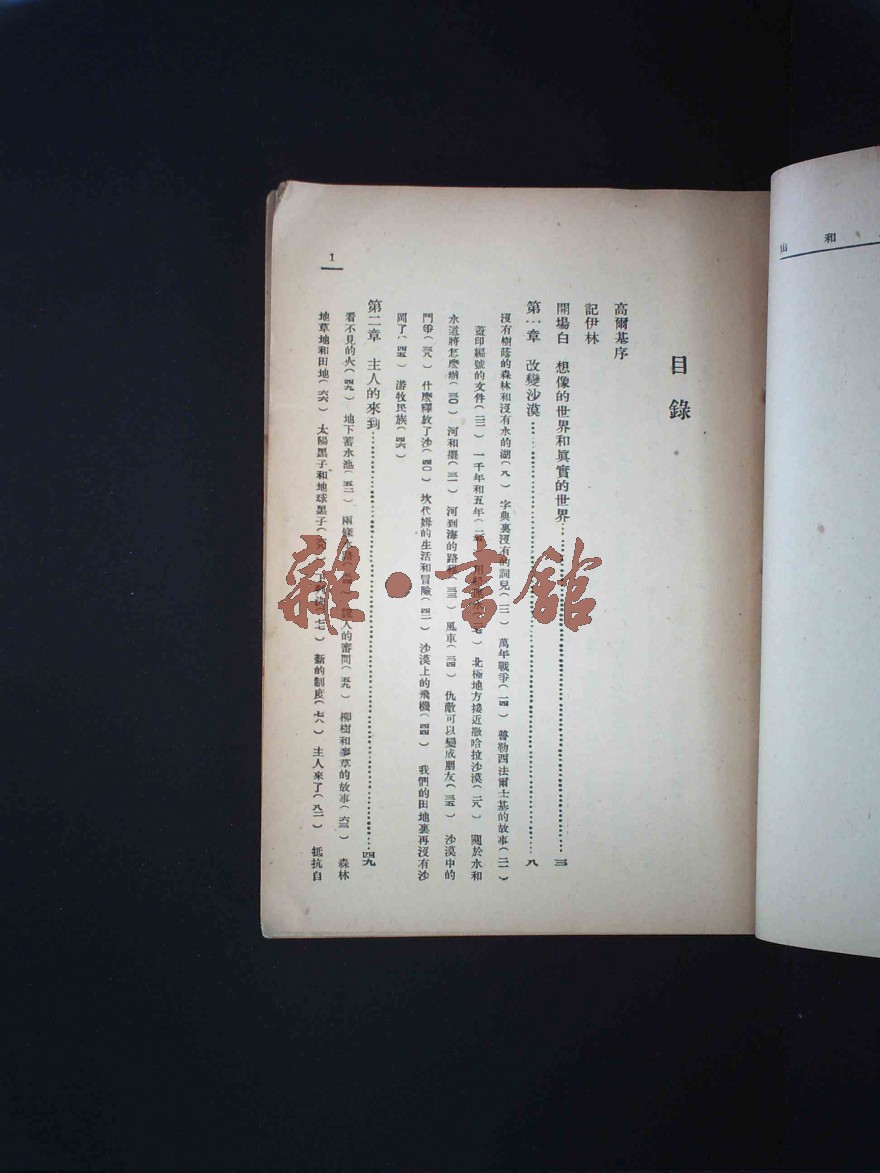 目錄
高爾基序
記伊林
開場白 想像的世界和眞實的世界……三
第一章 改變沙漠……八
沒有樹蔭的森林和沒有水的湖(八) 字典裏沒有的詞兒(一二) 萬年戰爭(一四) 普勒西法爾士基的故事(二一)
蓋印編號的文件(二二) 一千年和五年 北極地方接近撒哈拉沙漠(二八) 關於水和
水道將怎麽辦(三〇) 河和擺(三一) 河到海的路程(三三) 風車(三四) 仇敵可以變成朋友(三五) 沙漠中的
鬥爭(三八) 什麽釋放了沙(四〇) 坎代姆的生活和冒險(四二) 沙漠上的飛機(四四) 我們的田地裏再沒有沙
岡了(四五) 游牧民族(四六)
第二章 主人的來到……四九
看不見的火(四九) 地下蓄水池(五二) 兩條 人的審問(五九) 柳樹和麥草的故事(六三) 森林
地草地和田地(六六) 太陽黑子和地球黑子 (七七) 新的制度(七八) 主人來了(八二) 抵抗自
1
山和
雜·書館